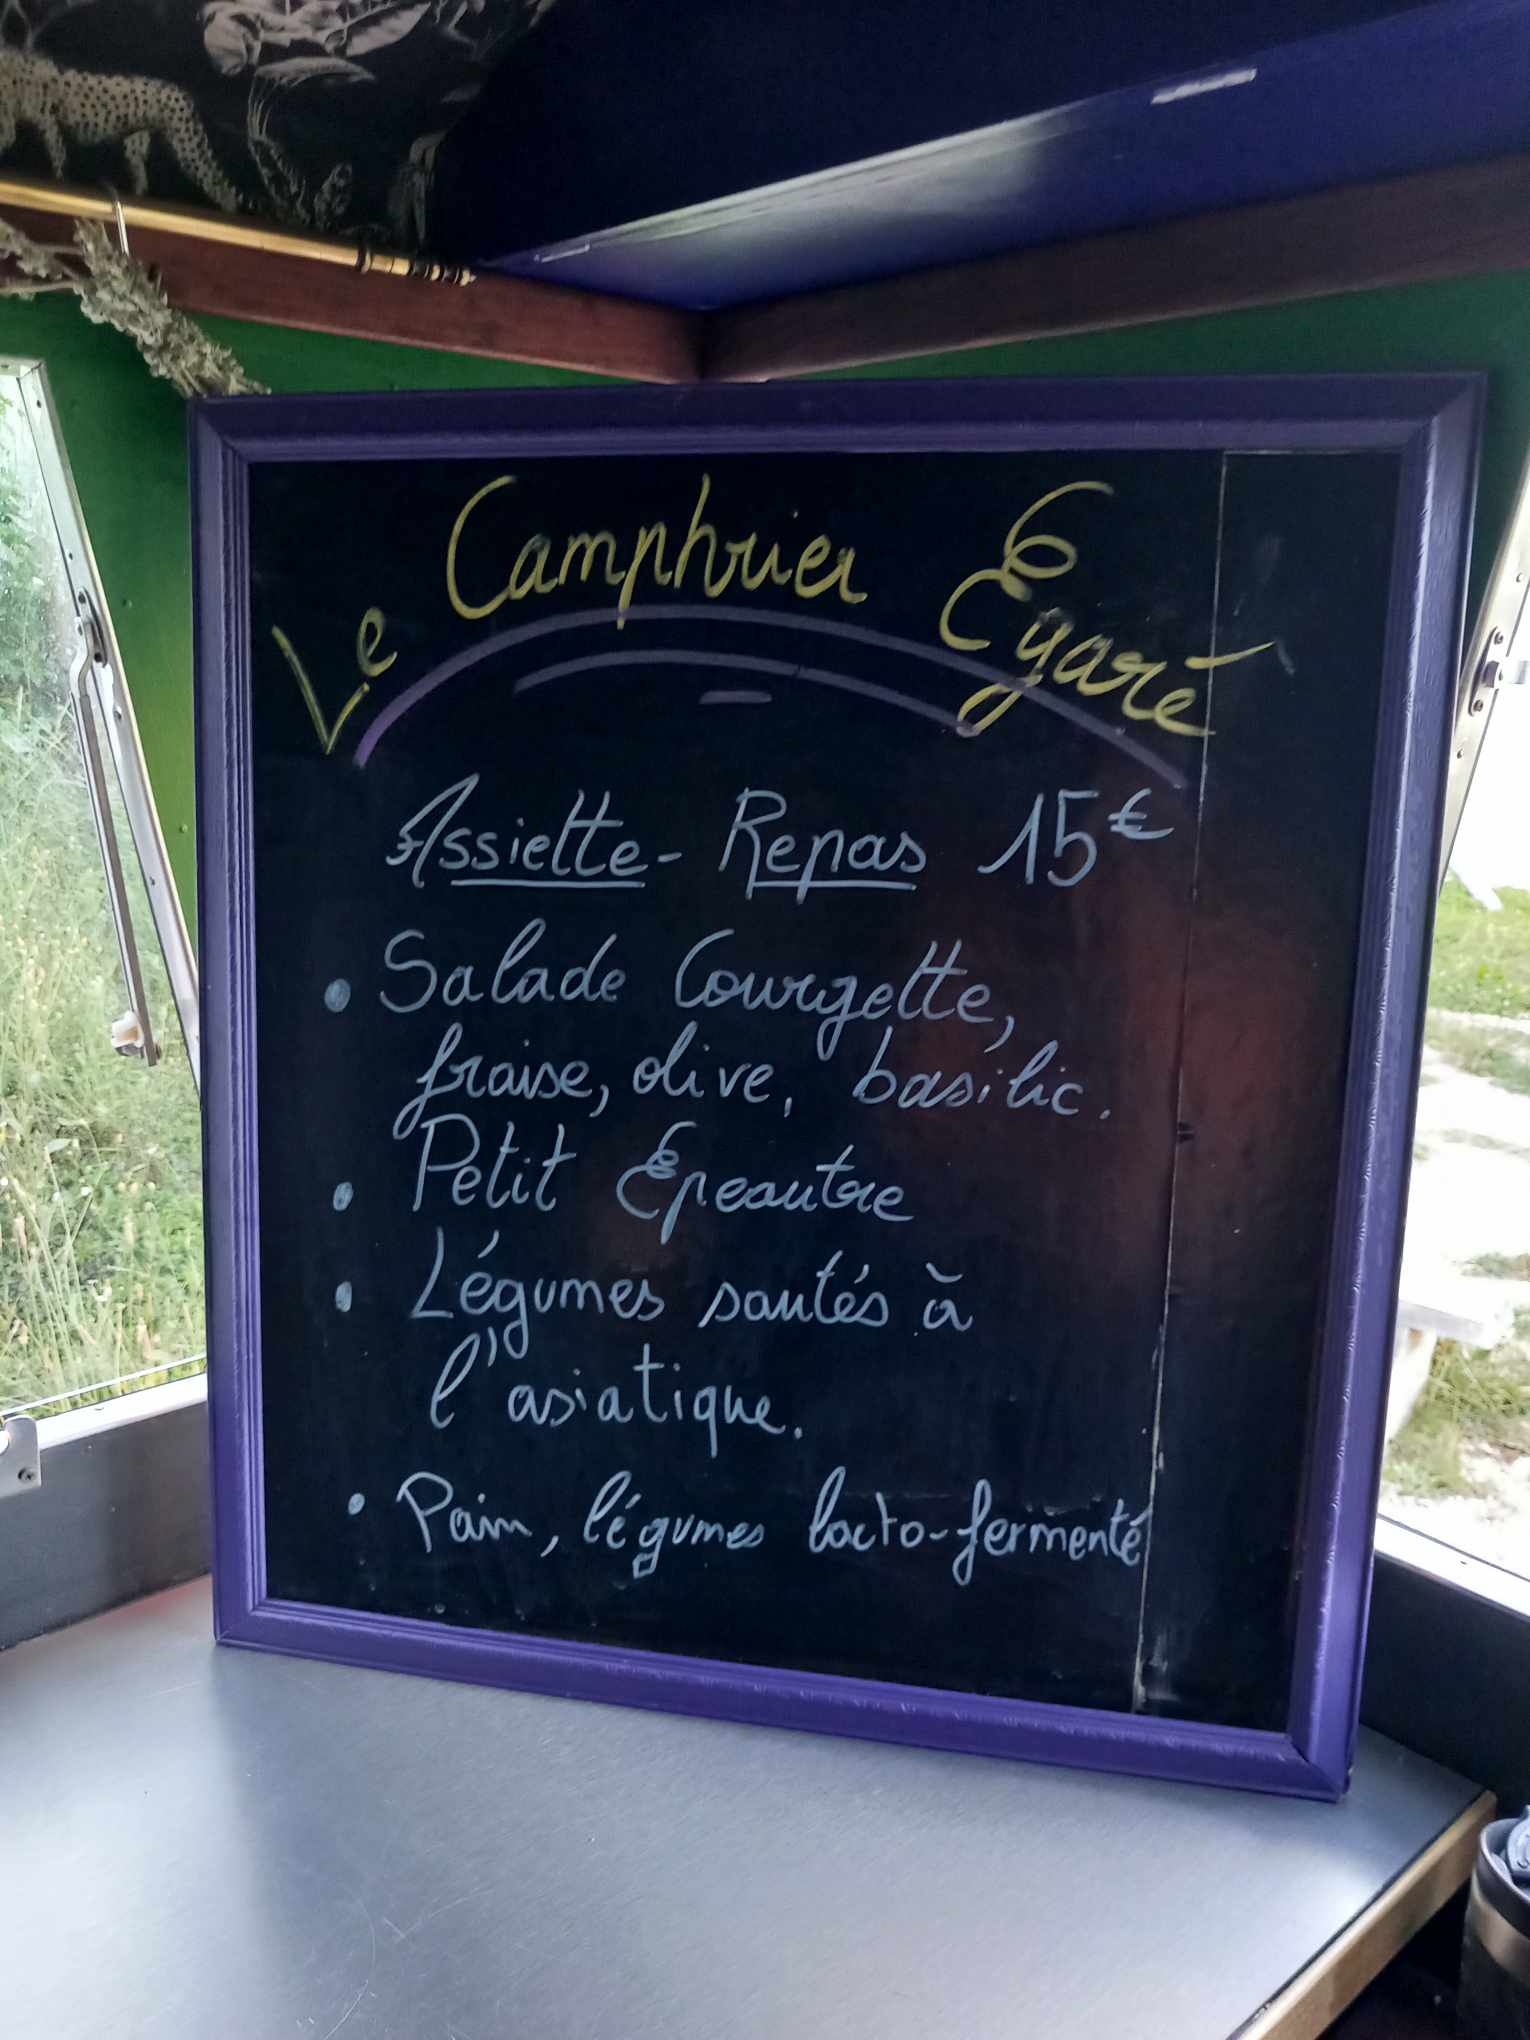 Le Camphrier Egaré
Assiette - Repas 15€
• Salade Courgette,
fraise, olive, basilic.
• Petit Epeautre
• Légumes sautés à
l'asiatique.
• Pain, légumes lacto-fermenté